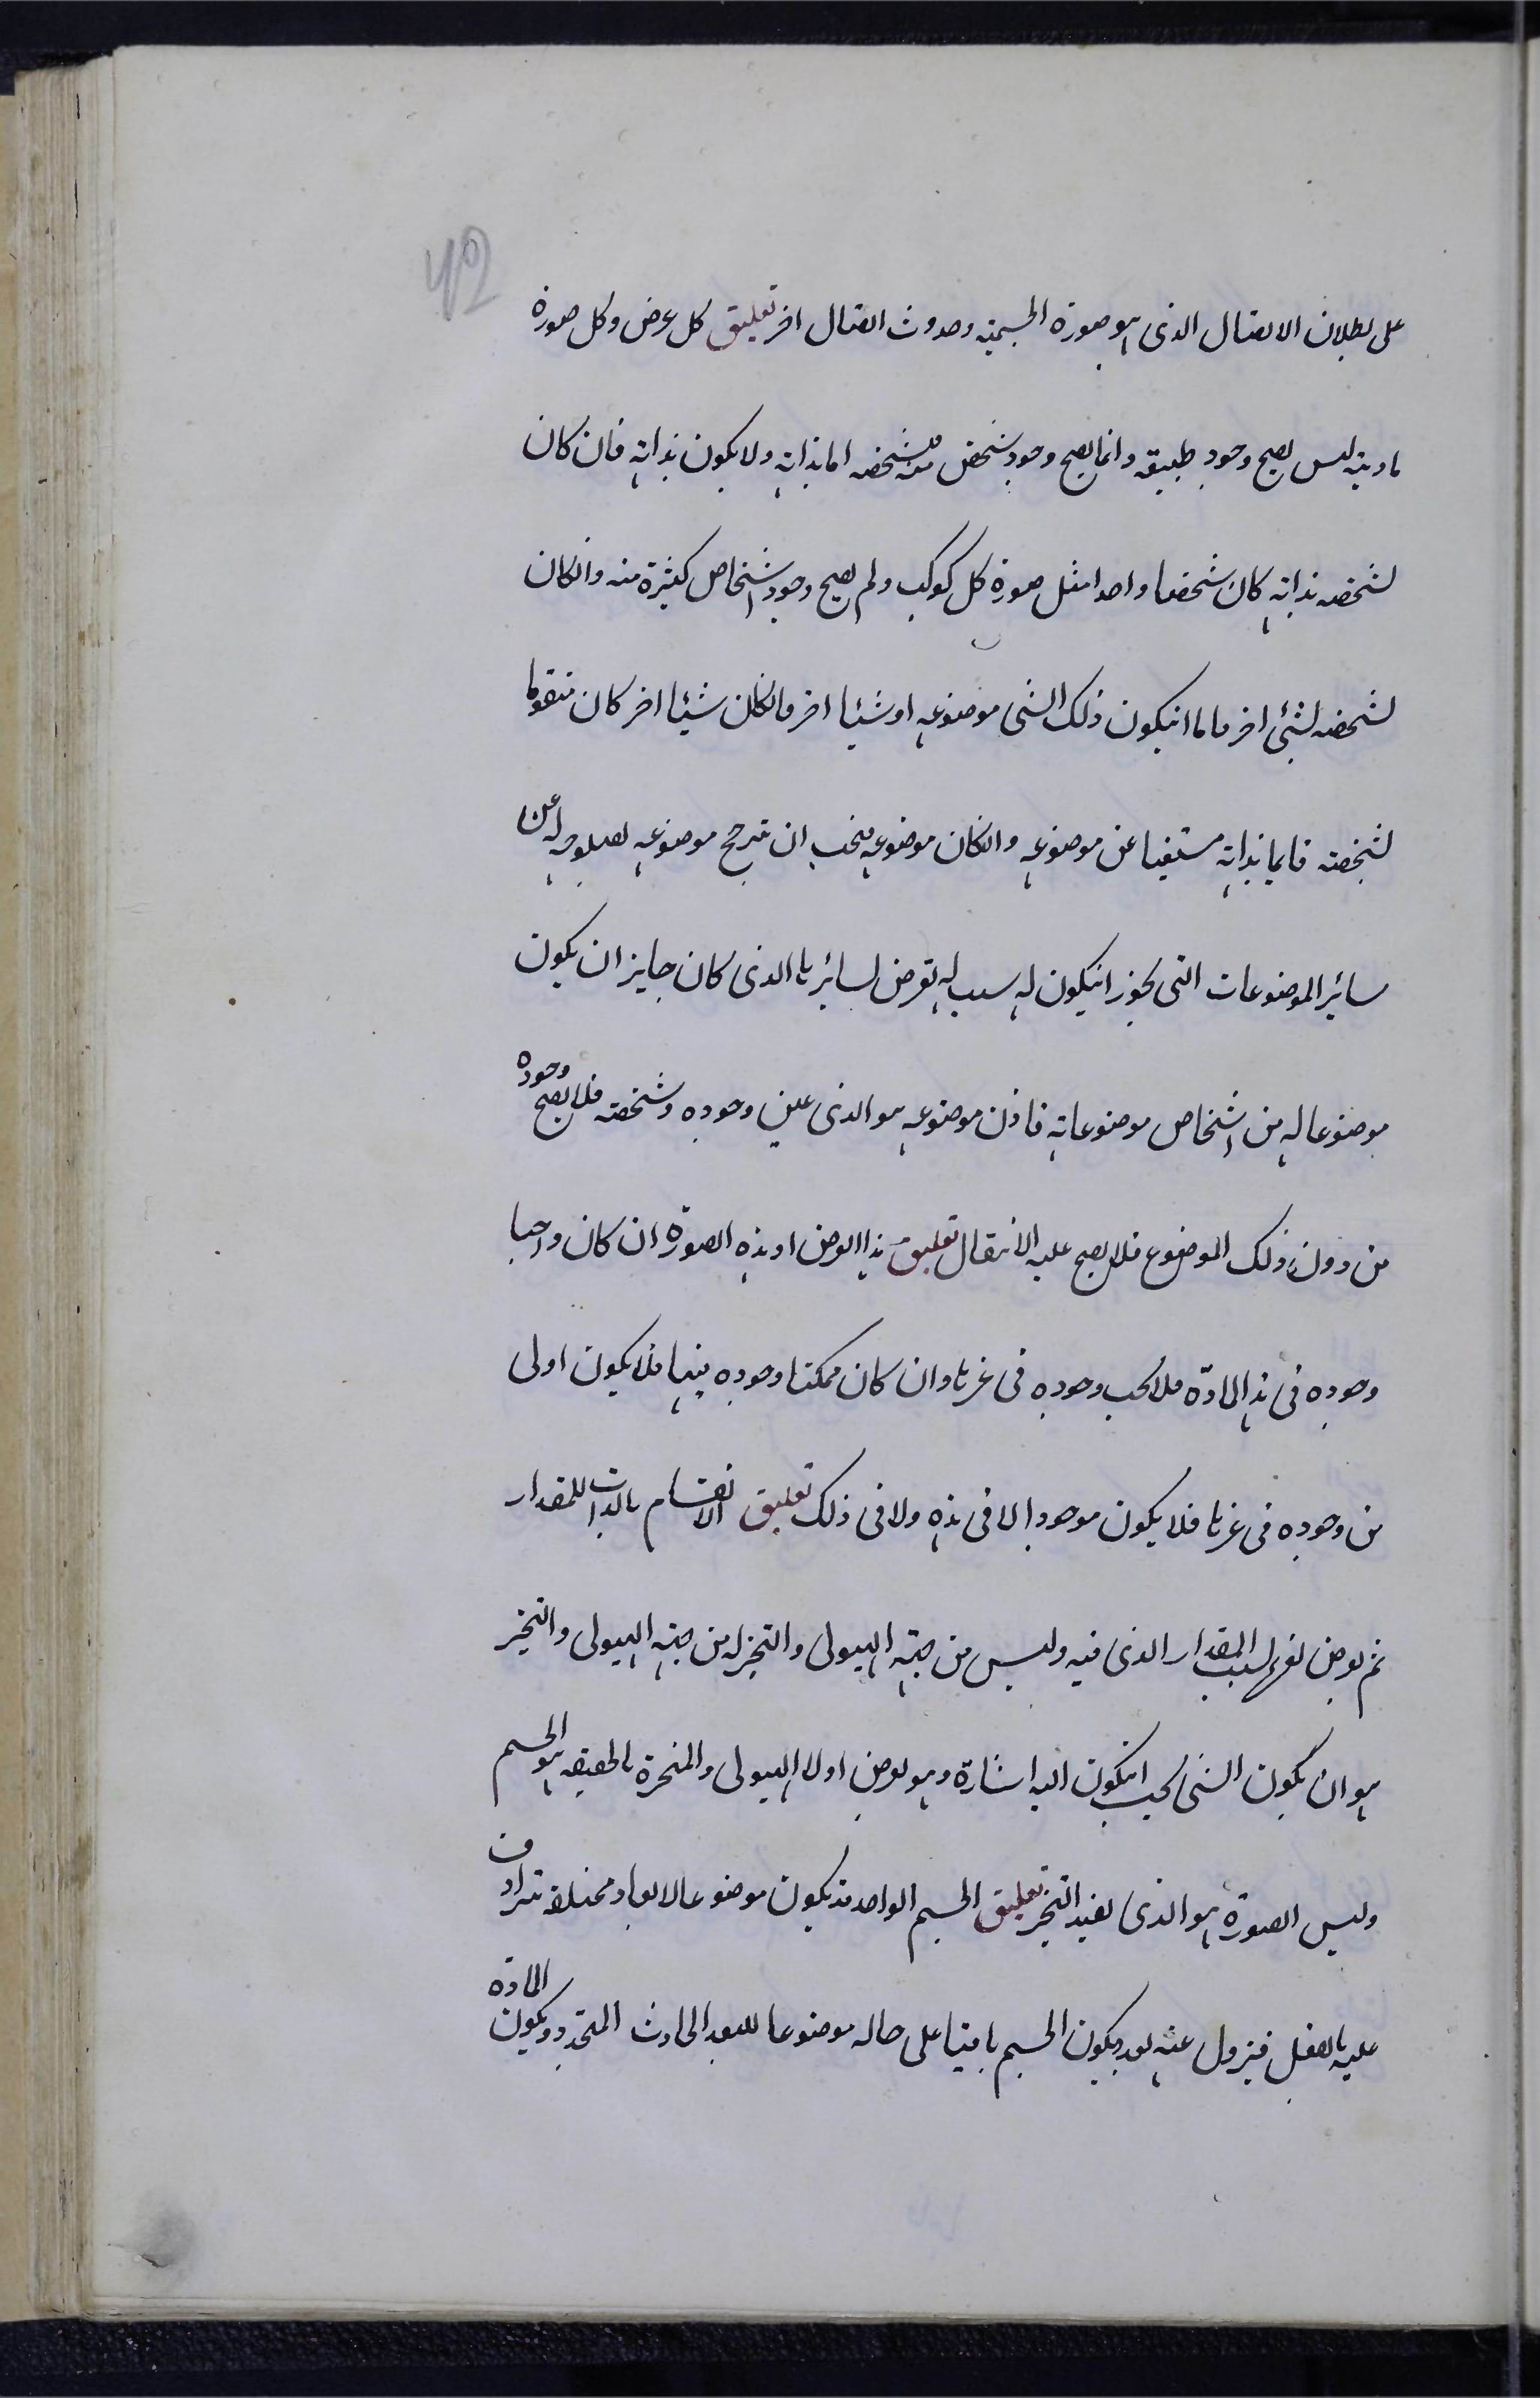 على بطلان الاتصال الذى هو صورة الجسمية وحدوث اتصال اخر تعليق كل عرض وكل صورة
مادية ليس يصح وجود طبيعته وانما يصح وجود شخص منه فتشخصه اما بذاته ولا يكون بذاته فان كان
تشخصه بذاته كان شخصا واحدا مثل صورة كل كوكب ولم يصح وجود اشخاص كثيرة منه وانكان
تشخصه لشئ اخر فاما انيكون ذلك الشى موضوعه او شيئا اخر فانكان شيئا اخر كان متقوما
لتشخصه قايما بذاته مستغنيا عن موضوعه وانكان موضوعه فيجب ان يترجح موضوعه لصلوحه له عن
سائر الموضوعات التى يجوز انيكون له سبب له تعرض لسائرها الذى كان جايز ان يكون
موضوعا له من اشخاص موضوعاته فاذن موضوعه هو الذى عين وجوده وتشخصه فلا يصح وجوده
من دون ذلك الموضوع فلا يصح عليه الانتقال تعليق هذا العرض او هذه الصورة ان كان واجبا
وجوده فى هذه المادّة فلا يجب وجوده فى غيرها وان كان ممكنا وجوده فيها فلا يكون اولى
من وجوده فى غيرها فلا يكون موجودا لا فى هذه ولا فى ذلك تعليق الانقسام بالذات للمقدار
ثم يعرض لغيره بسبب المقدار الذى فيه وليس من جهة الهيولى والتحيز له من جهة الهيولى والتحيز
هو ان يكون الشى بحيث انيكون اليه اشارة وهو يعرض اولا الهيولى والمتحيزة بالحقيقه هو الجسم
وليس الصورة هو الذى يفيد التحيز تعليق الجسم الواحد قد يكون موضوعا لابعاد مختلفة تترادف
عليه بالفعل فيزول عنه بعد ويكون الجسم باقيا على حاله موضوعا للبعد الحادث المتجدد ويكون المادة